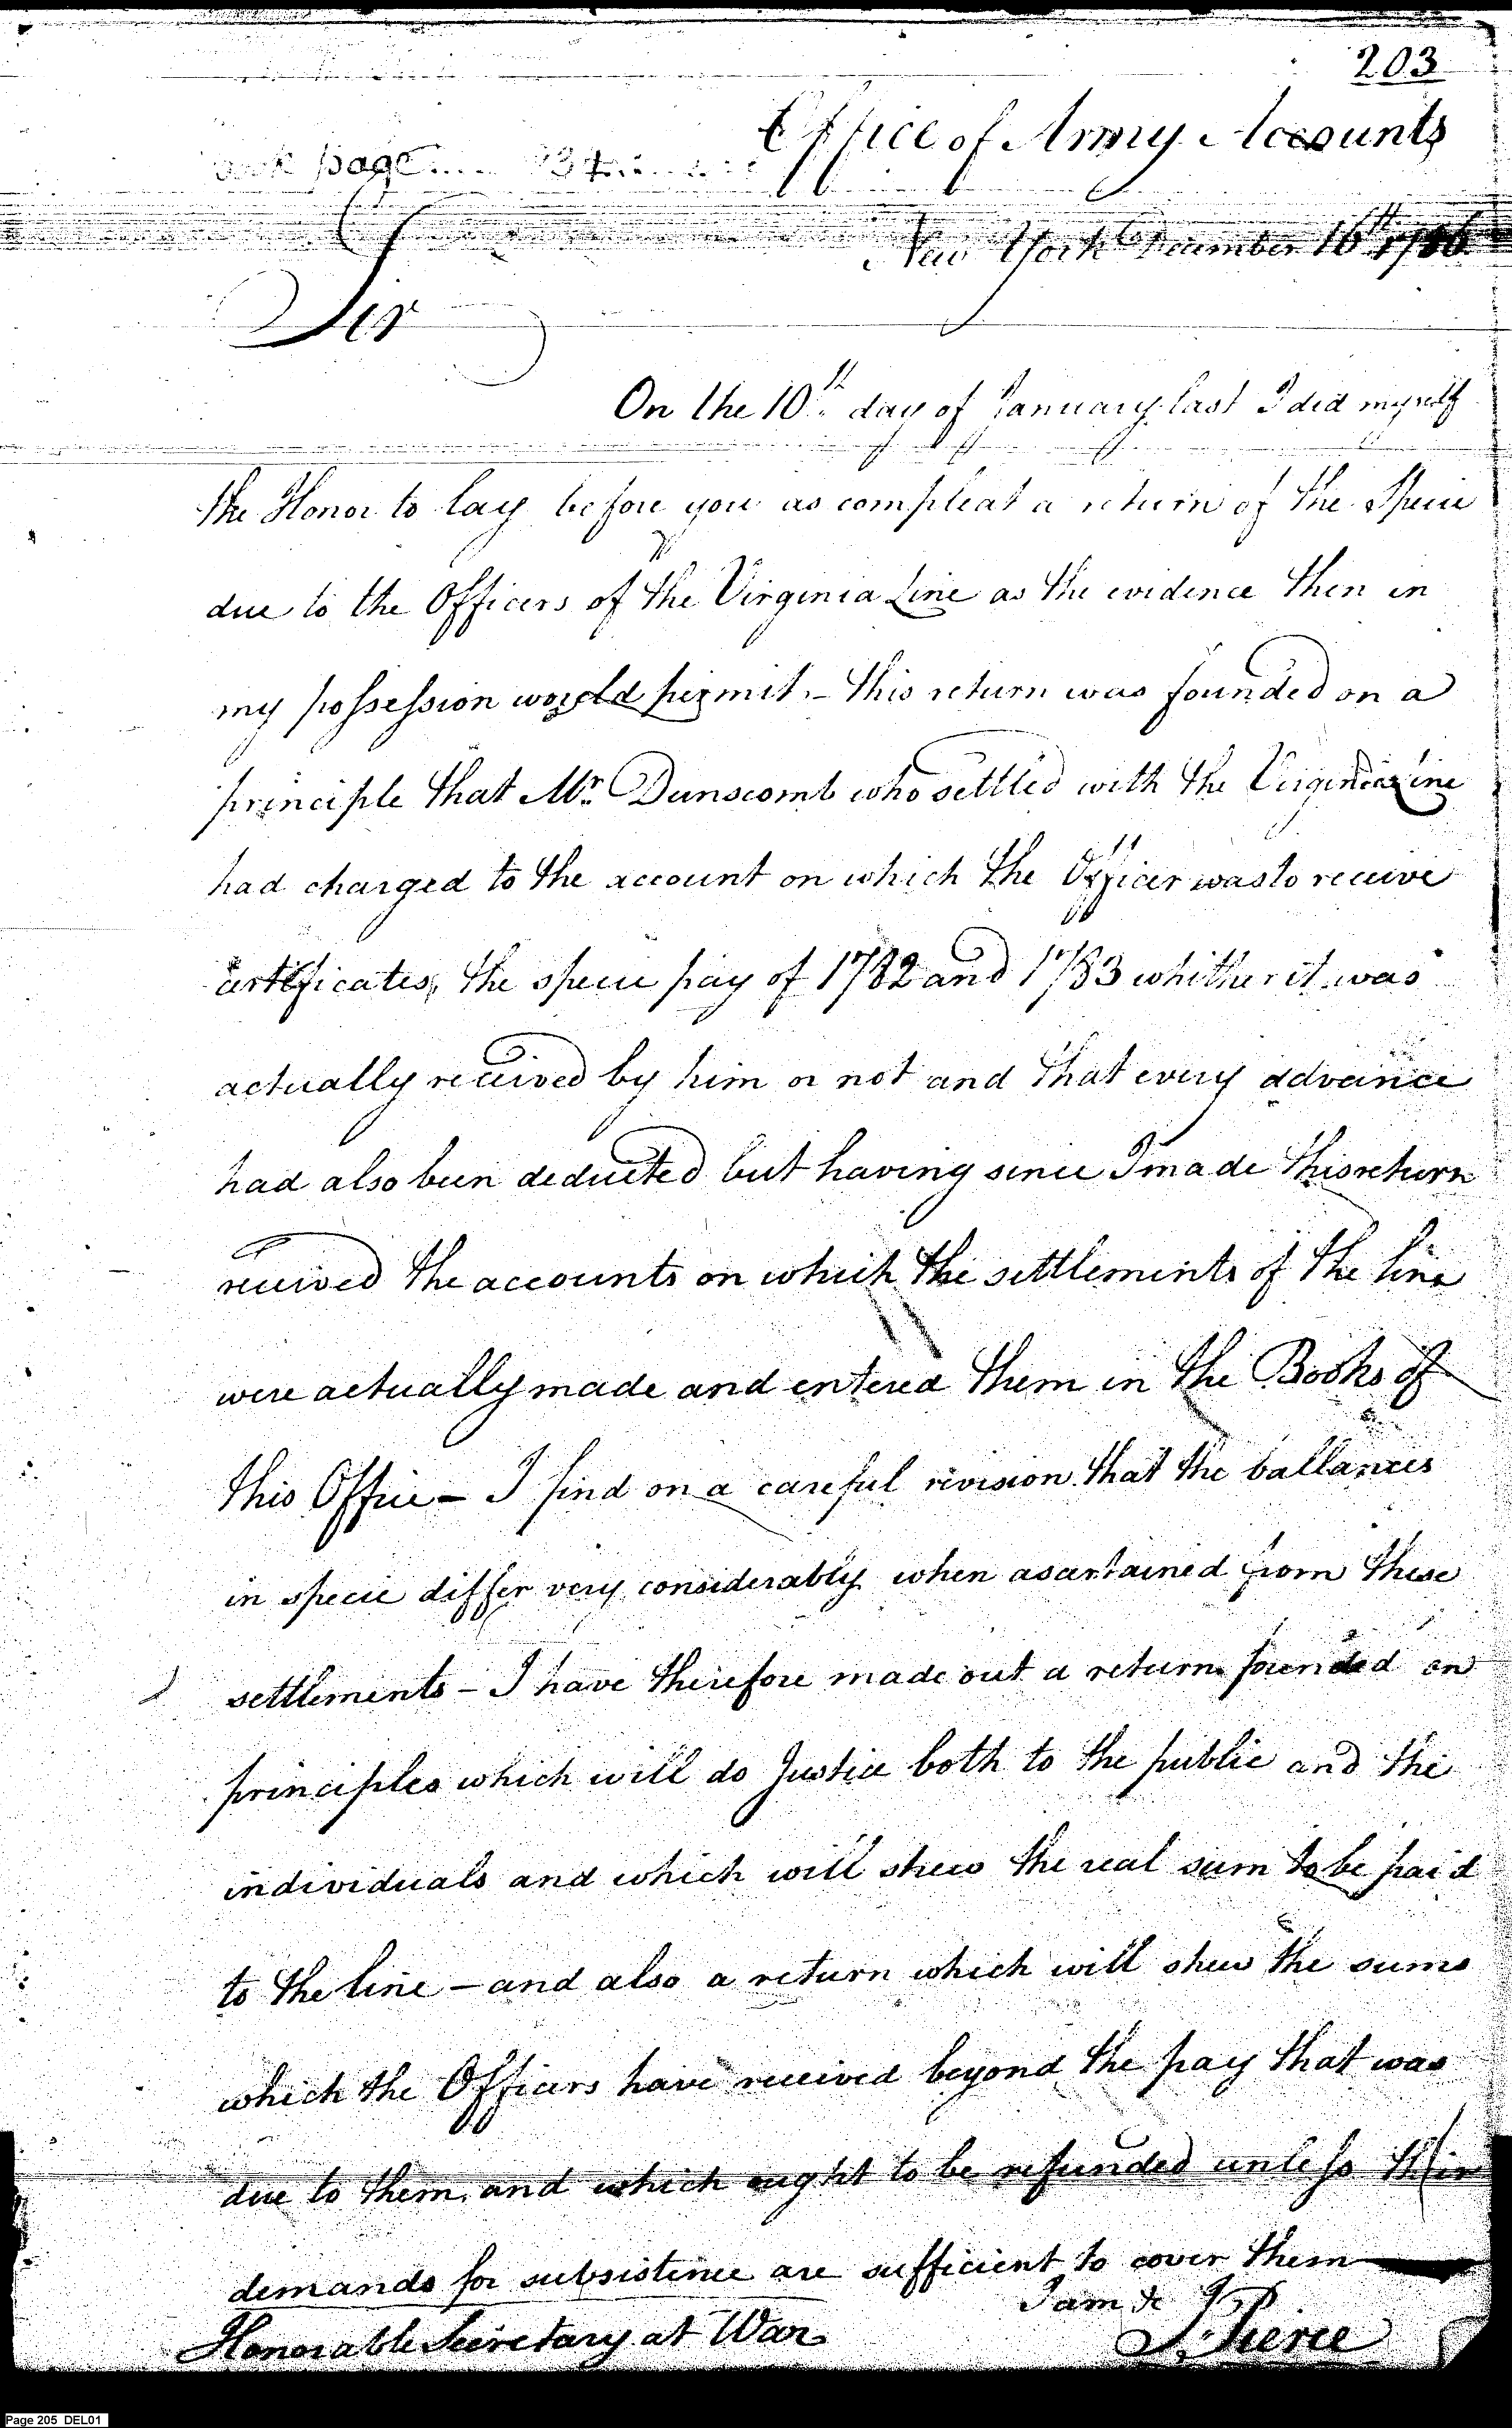 203
Office of Army Accounts
page
New York December 16th 1786
Sir
On the 10th day of January last I did myself
the Honor to lay before you as compleat a return of the Specie
due to the Officers of the Virginia Line as the evidence then in
my possession would permit. - this return was founded on a
principle that Mr. Dunscomb who settled with the Virginia Line
had charged to the account on which the Officer was to receive
certificates, the specie pay of 1782 and 1783 whither it was
actually received by him or not and that every advance
had also been deducted but having since I made this return
received the accounts on which the settlements of the line
were actually made and entered them in the Books of
this Office - I find on a careful revision that the ballances
in specie differ very considerably when asartained from these
settlements - I have therefore made out a return founded on
principles which will do Justice both to the public and the
individuals and which will shew the real sum to be paid
to the line - and also a return which will shew the sums
which the Officers have received beyond the pay that was
due to them, and which ought to be refunded unless their
demands for subsistence are sufficient to cover them
I am &c
Honorable Secretary at War
J. Pierce
Page 205 DEL01